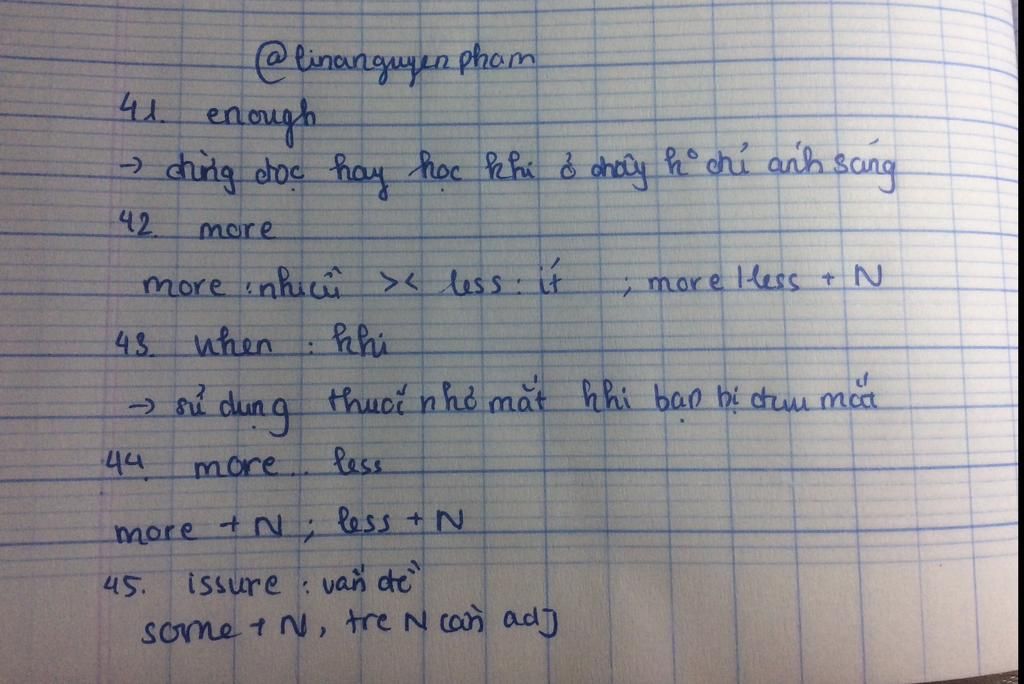 @linanguyenpham
41. enough
→ đừng đọc hay học khi ở đây k° chỉ ánh sáng
42. more
more : nhiều >< less : ít ; more / less + N
43. when : khi
→ sử dụng thuốc nhỏ mắt khi bạn bị đau mắt
44 more .. less
more + N ; less + N
45. issure : vấn đề
some + N, trc N cần adj